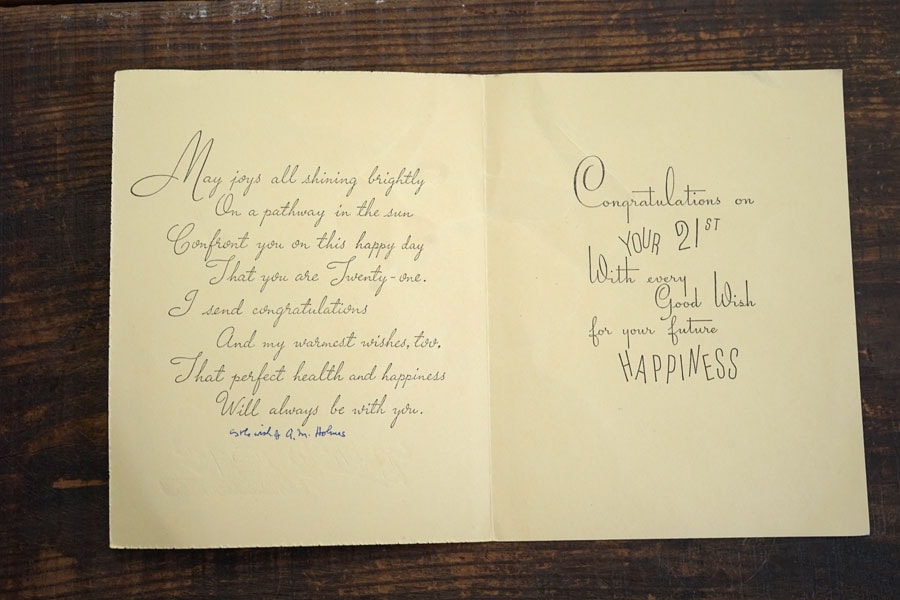 May joys all shining brightly
On a pathway in the sun
Confront you on this happy day
That you are Twenty-one.
I send congratulations
And my warmest wishes, too,
That perfect health and happiness
Will always be with you.
A. M. Holmes
Congratulations on
YOUR 21ST
With every
Good Wish
for your future
HAPPINESS